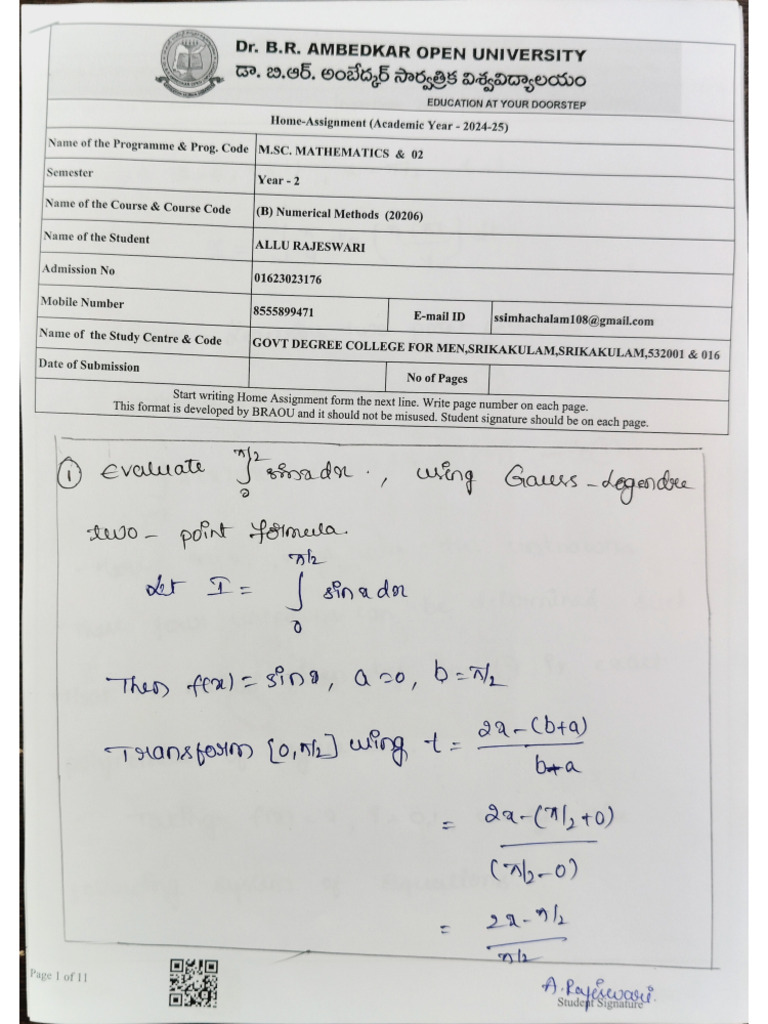 Dr. B.R. AMBEDKAR OPEN UNIVERSITY
డా. బి.ఆర్. అంబేద్కర్ సార్వత్రిక విశ్వవిద్యాలయం
EDUCATION AT YOUR DOORSTEP
Home-Assignment (Academic Year - 2024-25)
Name of the Programme & Prog. Code M.SC. MATHEMATICS & 02
Semester Year - 2
Name of the Course & Course Code (B) Numerical Methods (20206)
Name of the Student ALLU RAJESWARI
Admission No 01623023176
Mobile Number 8555899471 E-mail ID ssimhachalam108@gmail.com
Name of the Study Centre & Code GOVT DEGREE COLLEGE FOR MEN,SRIKAKULAM,SRIKAKULAM,532001 & 016
Date of Submission No of Pages
Start writing Home Assignment form the next line. Write page number on each page.
This format is developed by BRAOU and it should not be misused. Student signature should be on each page.
① Evaluate ∫₀^π/2 sinx dx., using Gauss-Legendre
two-point formula.
Let I = ∫₀^π/2 sinx dx
Then f(x) = sinx, a=0, b=π/2
Transform [0,π/2] using t = 2x-(b+a) / b-a
= 2x-(π/2+0) / (π/2-0)
= 2x-π/2 / π/2
Page 1 of 11
A.Rajeswari.
Student Signature